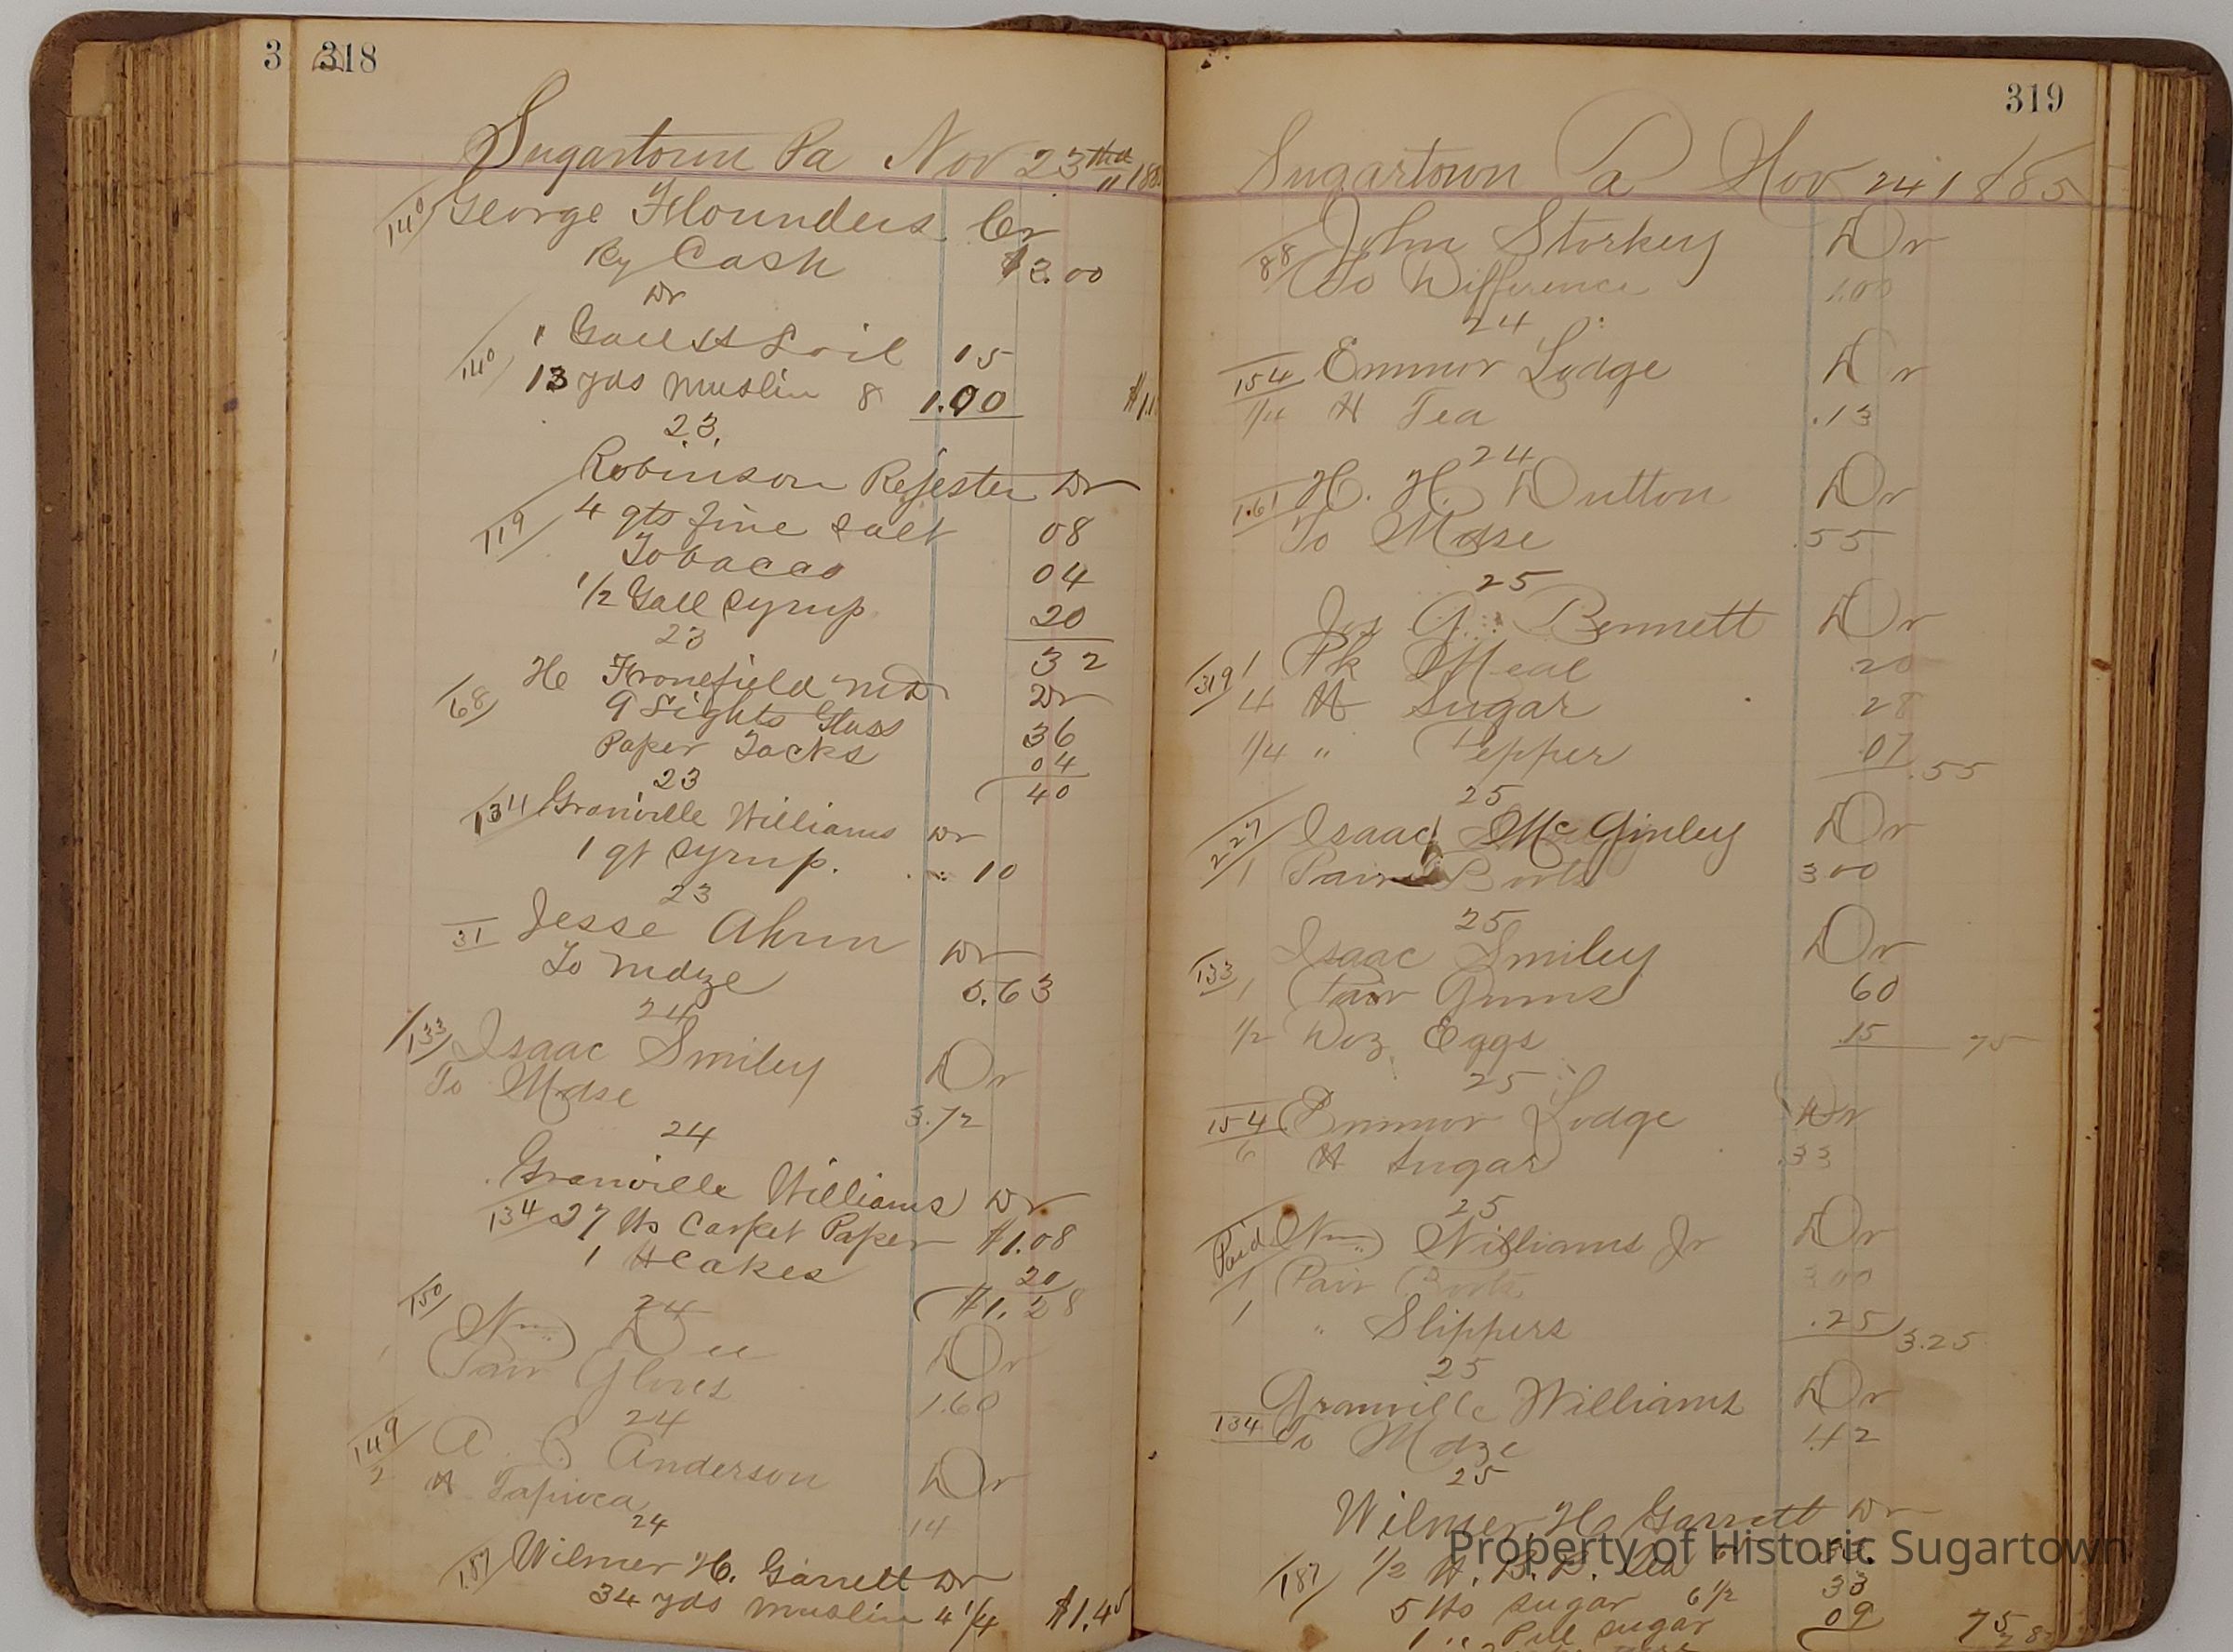 3 318
Sugartown Pa Nov 23 188
140 George Flounders Cr
By Cash $3.00
Dr
" Gall oil 15
140 13 yds Muslin 8 1.00 $1.1
23.
Robinson Rejester Dr
119 4 qts fine salt 08
Tobacco 04
1/2 Gall Syrup 20
23 32
68 H Fronefield MD Dr
9 Lights Glass 36
Paper Tacks 04
23 40
134 Granville Williams Dr
1 qt Syrup. 10
23
31 Jesse Ahrn Dr
To Mdze 5.63
24
133 Isaac Smiley Dr
To Mdse 3.72
24
Granville Williams Dr
134 27 lbs Carpet Paper $1.08
1 lb Cakes 20
$1.28
150 24
Wm Dee Dr
1 Pair Gloves 1.60
24
149 A. Anderson Dr
2 lb Tapioca 14
24
187 Wilmer H. Garrett Dr
34 yds Muslin 4 1/4 $1.45
319
Sugartown Pa Nov 24 1885
88 John Storkey Dr
To Difference 1.00
24
154 Emmor Lodge Dr
1/4 lb Tea .13
24
161 H. H. Dutton Dr
To Mdse .55
25
Jos Bennett Dr
319 1 Pk Meal 20
4 lb Sugar 28
1/4 " Pepper .07 .55
25
227 Isaac McGinley Dr
1 Pair Boots 3 00
25
133 Isaac Smiley Dr
1 Pair Gums 60
1/2 Doz. Eggs .15 75
25
154 Emmor Lodge Dr
6 lb Sugar .33
25
Paid Wm Williams Jr Dr
1 Pair Boots 3.00
1 " Slippers .25 3.25
25
Granville Williams Dr
134 To Mdze 1.42
25
Wilmer H Garrett Dr
187 1/2 lb. B. B. Tea
5 lbs Sugar 6 1/2 33
1 " Pul sugar 09 75
Property of Historic Sugartown